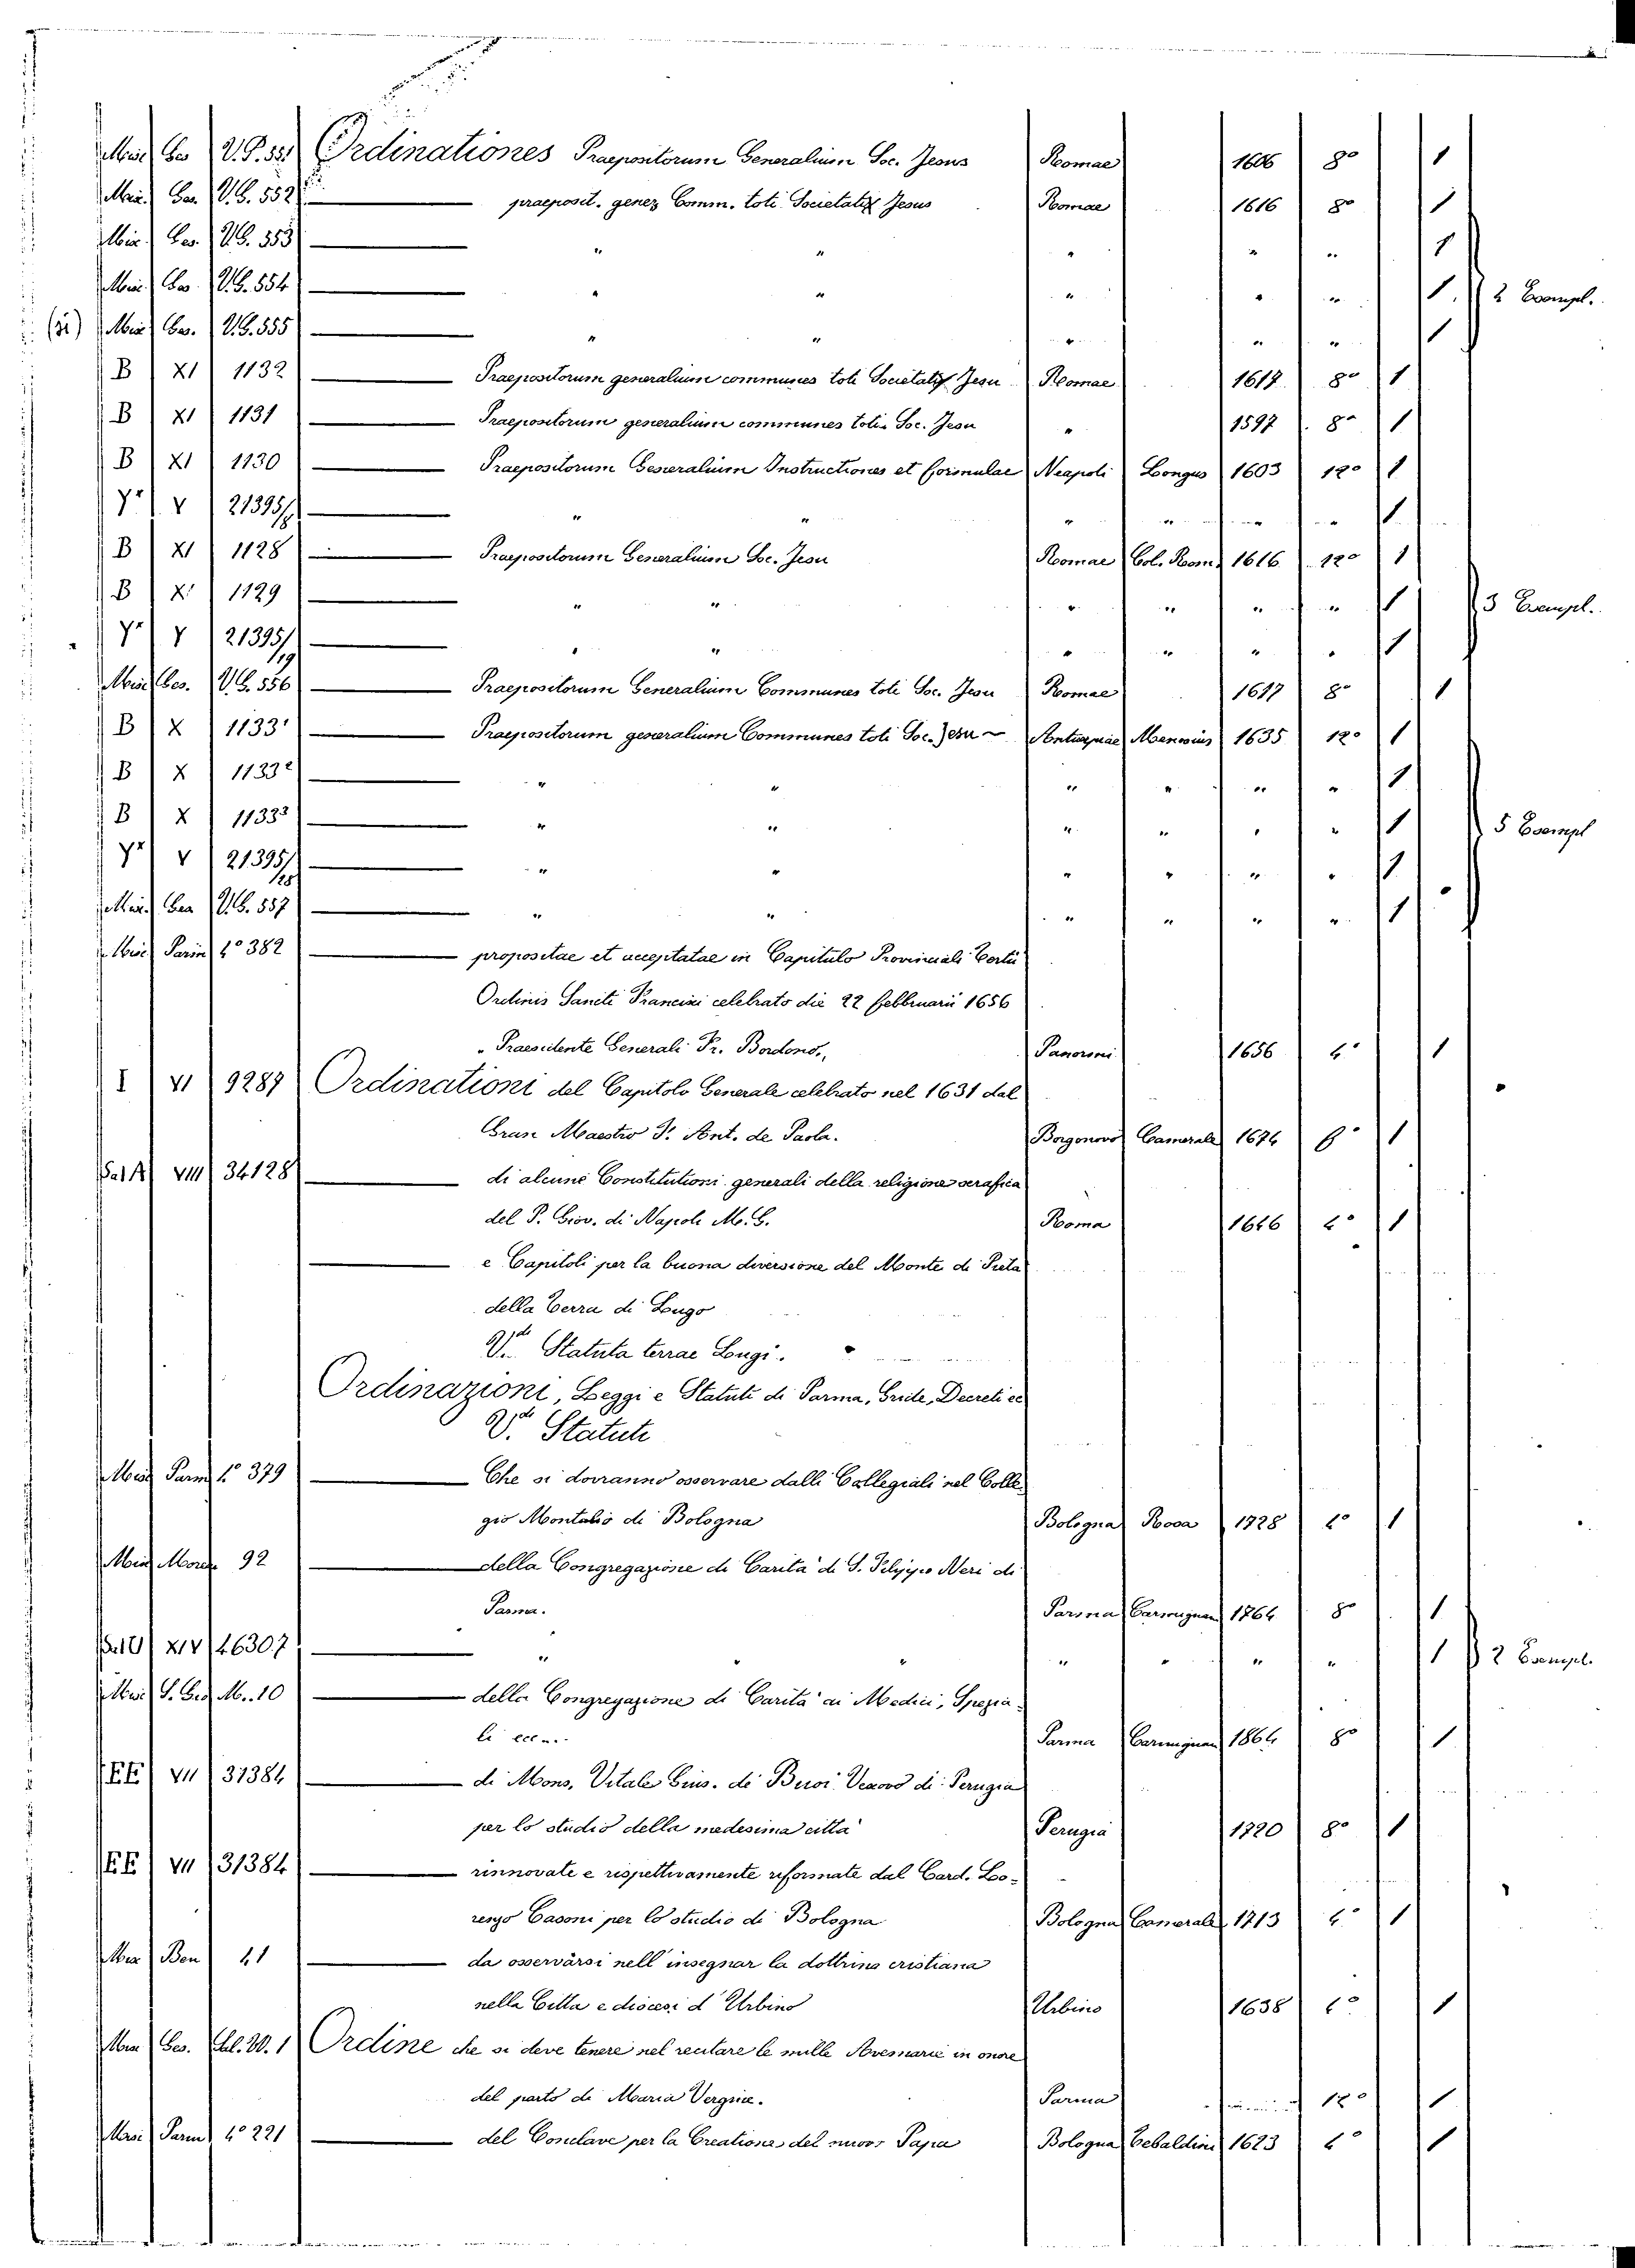 Misc Ges V.G. 551 Ordinationes Praepositorum Generalium Soc. Jesus Romae 1606 8º 1
Misc. Ges. V.G. 552 — praeposit. gener Comm. toti Societatis Jesus Romae 1616 8º 1
Misc. Ges. V.G. 553 — " " " " " 1
Misc. Ges. V.G. 554 — " " " " " 1 2 Esempl.
Misc Ges. V.G. 555 — " " " " " 1
B XI 1132 — Praepositorum generalium communes toti Societatis Jesu Romae 1617 8º 1
B XI 1131 — Praepositorum generalium communes toti Soc. Jesu " 1597 8º 1
B XI 1130 — Praepositorum Generalium Instructiones et formulae Neapoli Longus 1603 12º 1
Yº V 21395/ — " " " " " " 1
B XI 1128 — Praepositorum Generalium Soc. Jesu Romae Col. Rom. 1616 12º 1
B XI 1129 — " " " " " " 1 3 Esempl.
Yº V 21395/19 — " " " " " " 1
Misc Ges. V.G. 556 — Praepositorum Generalium Communes toti Soc. Jesu Romae 1617 8º 1
B X 1133¹ — Praepositorum generalium Communes toti Soc. Jesu Antuerpiae 1635 12º 1
B X 1133² — " " " " " " 1
B X 1133³ — " " " " " " 1 5 Esempl
Yº V 21395/128 — " " " " " " 1
Misc. Ges V.G. 557 — " " " " " " 1
Misc Parm 4º 382 — propositae et acceptatae in Capitulo Provinciali Tertii
Ordinis Sancti Francisci celebrato die 22 febbruarii 1656
" Praesidente Generali Fr. Bordono " 1656 4º 1
I VI 9287 Ordinationi del Capitolo Generale celebrato nel 1631 dal
Gran Maestro F. Ant. de Paola. Borgonovo Camerale 1674 1
Sal A VIII 34128 — di alcune Constitutioni generali della religione serafica
del P. Giov. di Napoli M. G. Roma 1646 4º 1
— e Capitoli per la buona diversione del Monte di Pieta
della Terra di Lugo
Vde Statuta terrae Lugi.
Ordinazioni, Leggi e Statuti di Parma, Gride, Decreti ec
Vde Statuti
Misc Parm 4º 379 — Che si dovranno osservare dalli Collegiali nel Colle-
gio Montalto di Bologna Bologna Rossi 1728 4º 1
Misc More 92 — della Congregazione di Carità di S. Filippo Neri di
Parma. Parma Carmignani 1764 8º 1
Sal XIV 46307 — " " " " " " " 1 2 Esempl.
Misc S. Ges M. 10 — della Congregazione di Carità ai Medici, Spezia-
li ecc... Parma Carmignani 1864 8º 1
EE VII 31384 — di Mons, Vitale Gius. de Buoi Vescovo di Perugia
per lo studio della medesima città Perugia 1720 8º 1
EE VII 31384 — rinnovate e rispettivamente riformate dal Card. Lo-
renzo Casoni per lo studio di Bologna Bologna Camerale 1713 4º 1
Misc Ben 41 — da osservarsi nell' insegnar la dottrina cristiana
nella Citta e diocesi d' Urbino Urbino 1638 4º 1
Misc Ges. 1 Ordine che si deve tenere nel recitare le mille Avemarie in onore
del parto di Maria Vergine. Parma 12º 1
Misc Parm 4º 221 — del Conclave per la Creatione del nuovo Papa Bologna Tebaldini 1623 4º 1